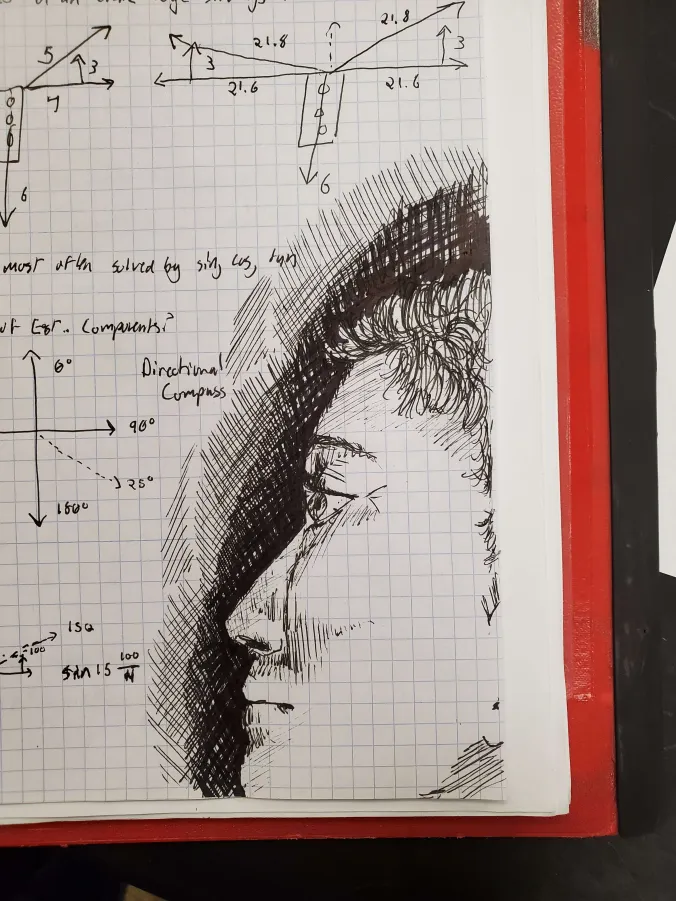 5
3
7
6
21.8
21.8
3
3
21.6
21.6
6
most often solved by sin, cos, tan
of Eqr.. Components?
0°
Directional
Compass
90°
25°
180°
150
100
sin 15 100/H